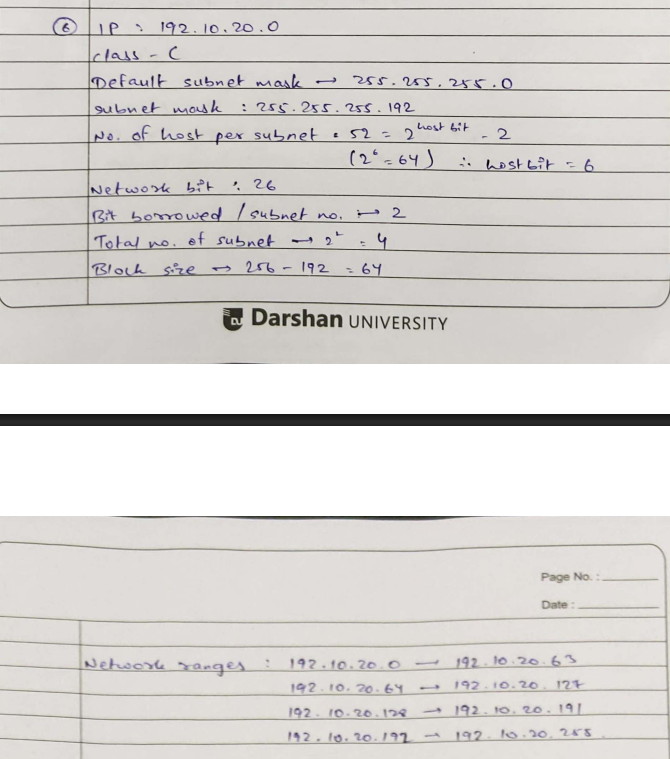 6 IP : 192.10.20.0
class - C
Default subnet mask → 255.255.255.0
subnet mask : 255.255.255.192
No. of host per subnet : 52 = 2^host bit - 2
(2^6 = 64) ∴ host bit = 6
Network bit : 26
Bit borrowed / subnet no. → 2
Total no. of subnet → 2^2 = 4
Block size → 256 - 192 = 64
Darshan UNIVERSITY
Page No. :
Date :
Network ranges : 192.10.20.0 → 192.10.20.63
192.10.20.64 → 192.10.20.127
192.10.20.128 → 192.10.20.191
192.10.20.192 → 192.10.20.255